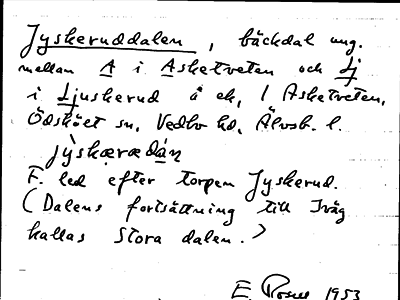 Jyskeruddalen, bäckdal ung.
mellan A i Asketveten och Lj
i Ljuskerud å ek, / Asketveten,
Ödsköet sn, Vedbo hd, Älvsb. l.
jỳskærædáṇ
F. led efter torpen Jyskerud.
(Dalens fortsättning till Iväg
kallas Stora dalen.)
E. 1953